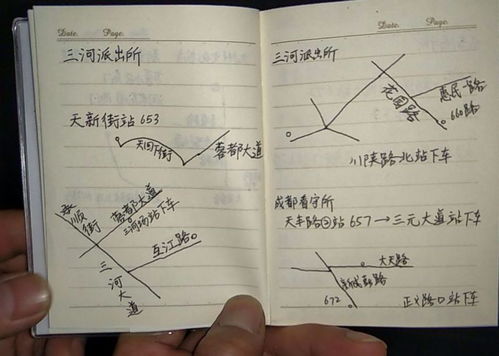 Date. Page.
三河派出所
天新街站 653
天回下街
蓉都大道
蓉都大道
三河场站下车
互江路
三河大道
Date. Page.
三河派出所
花园路
惠民一路
660路
川陕路北站下车
成都看守所
天丰路②站 657→三元大道站下车
大天路
672
正义路口站下车